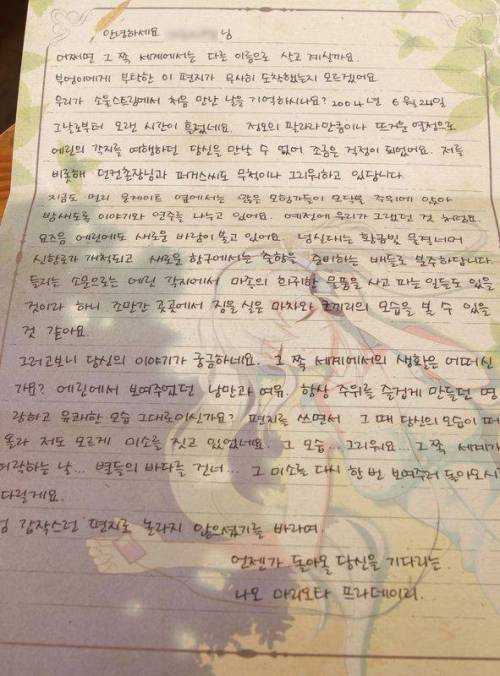 안녕하세요 님
어쩌면 그 쪽 세계에서는 다른 이름으로 살고 계실까요.
부엉이에게 부탁한 이 편지가 무사히 도착했는지 모르겠어요
우리가 소울스트림에서 처음 만난 날을 기억하시나요? 2004년 6월 24일
그날로부터 오랜 시간이 흘렀네요. 정오의 팔라라만큼이나 뜨거운 열정으로
에린의 각지를 여행하던 당신을 만날 수 없어 조금은 걱정이 되었어요. 저를
비롯해 던컨촌장님과 퍼거스씨도 무척이나 그리워하고 있답니다.
지금도 멀리 문게이트 옆에서는 많은 모험가들이 모닥불 주위에 앉아
밤새도록 이야기와 연주를 나누고 있어요. 예전에 우리가 그랬던 것 처럼요.
요즈음 에린에도 새로운 바람이 불고 있어요. 넘실대는 황금빛 물결너머
신항로가 개척되고 새로운 항구에서는 출항을 준비하는 배들로 분주하답니다.
들리는 소문으로는 에린 각지에서 미증의 희귀한 물품을 사고 파는 일들도 있을
것이라 하니 조만간 곳곳에서 짐을 실은 마차와 코끼리의 모습을 볼 수 있을
것 같아요.
그러고보니 당신의 이야기가 궁금하네요. 그 쪽 세계에서의 생활은 어떠신
가요? 에린에서 보여주었던 낭만과 여유. 항상 주위를 즐겁게 만들던 명
랑하고 유쾌한 모습 그대로이신가요? 편지를 쓰면서 그 때 당신의 모습이 떠
올라 저도 모르게 미소를 짓고 있었네요. 그 모습... 그리워요... 그 쪽 세계가
허락하는 날... 별들의 바다를 건너... 그 미소를 다시 한 번 보여주러 돌아오시
다릴게요.
갑작스런 편지로 놀라지 않으셨기를 바라며.
언젠가 돌아올 당신을 기다리는.
나오 마리오타 프라데이리.